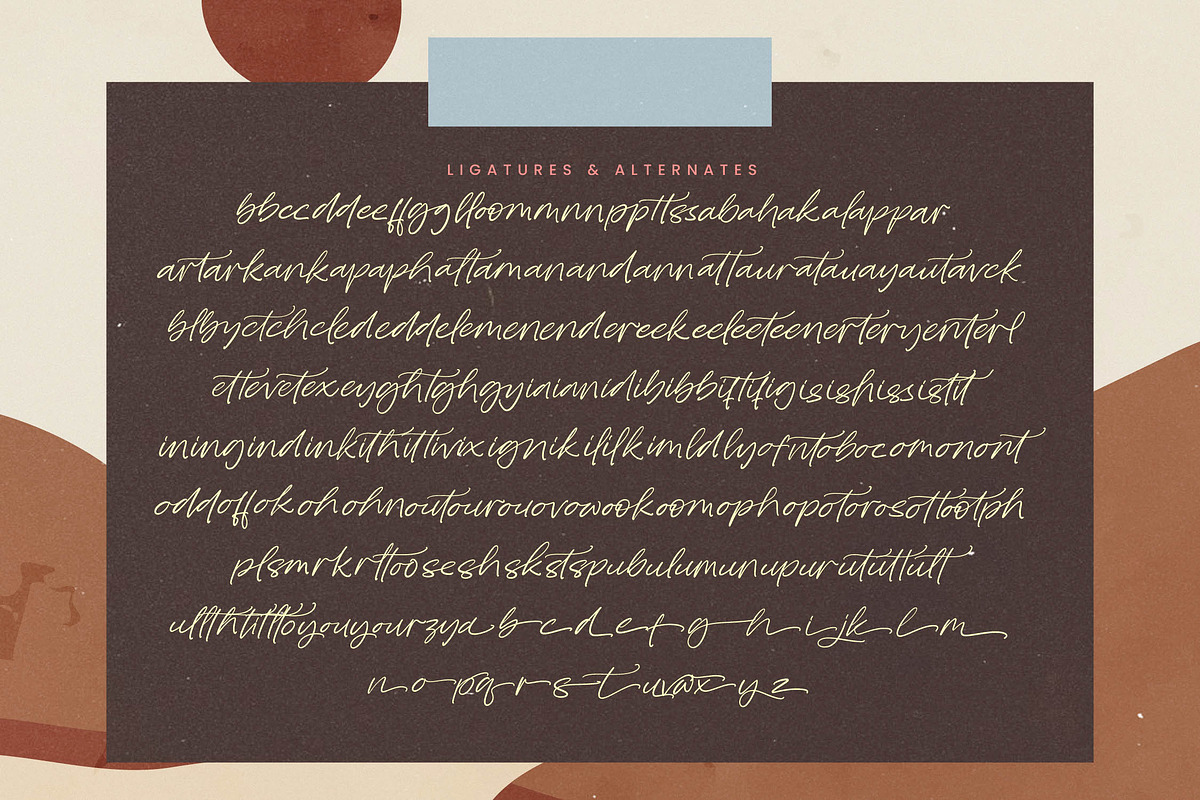 LIGATURES & ALTERNATES
bbccddeeffgglloommnnppttssabahakalappar
artarkankapaphaftamanandannattauratauayautavck
blbyctchclededdelemenendereekeeleeteenerteryenterl
ettevetexeyghtghgyiaianidibibbiftifigisishississtit
iningindinkithittivixignikililkimldlyofntobocomonont
oddoffokohohnoutourouovowookoomophopotorosottootph
plsmrkrttooseshskstspubulumunupurututtult
ullthtitlttoyouyourzyabcdefghijklm
nopqrstuvwxyz